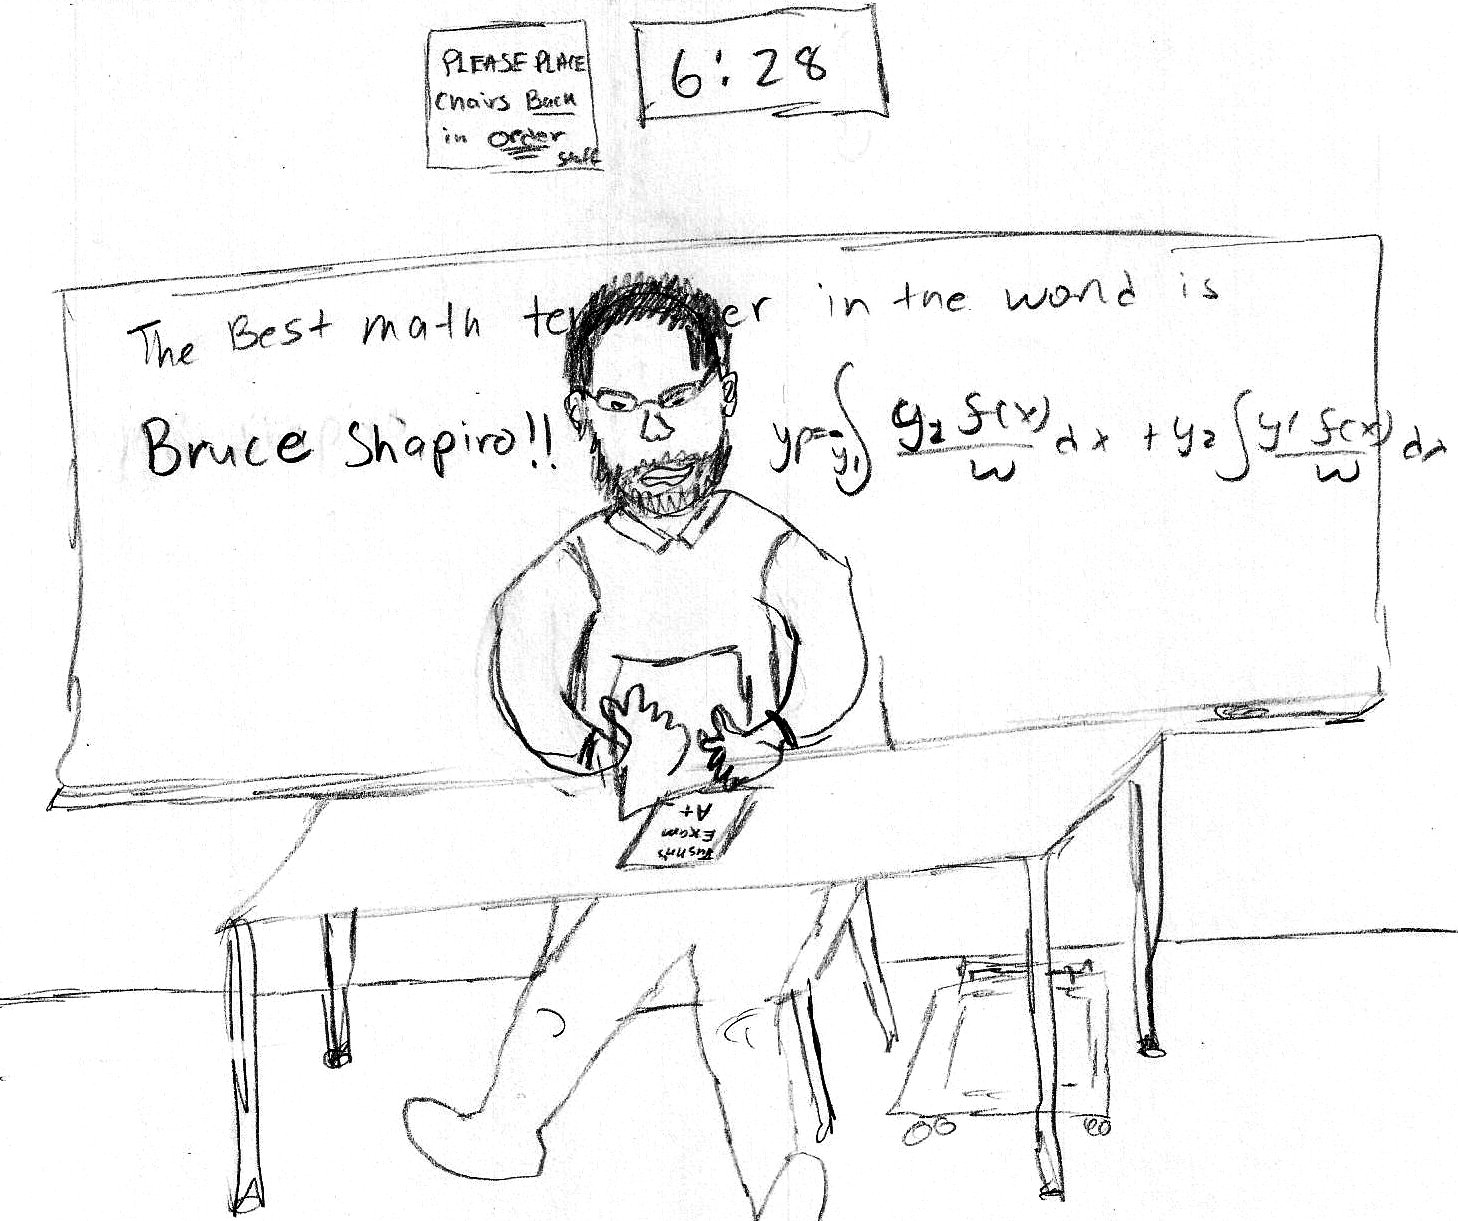 PLEASE PLACE
Chairs Back
in order
staff
6:28
The Best math te er in the world is
Bruce Shapiro!!
yp=-y1∫ y2 f(x)/w dx + y2 ∫ y1 f(x)/w dx
A+
Exam